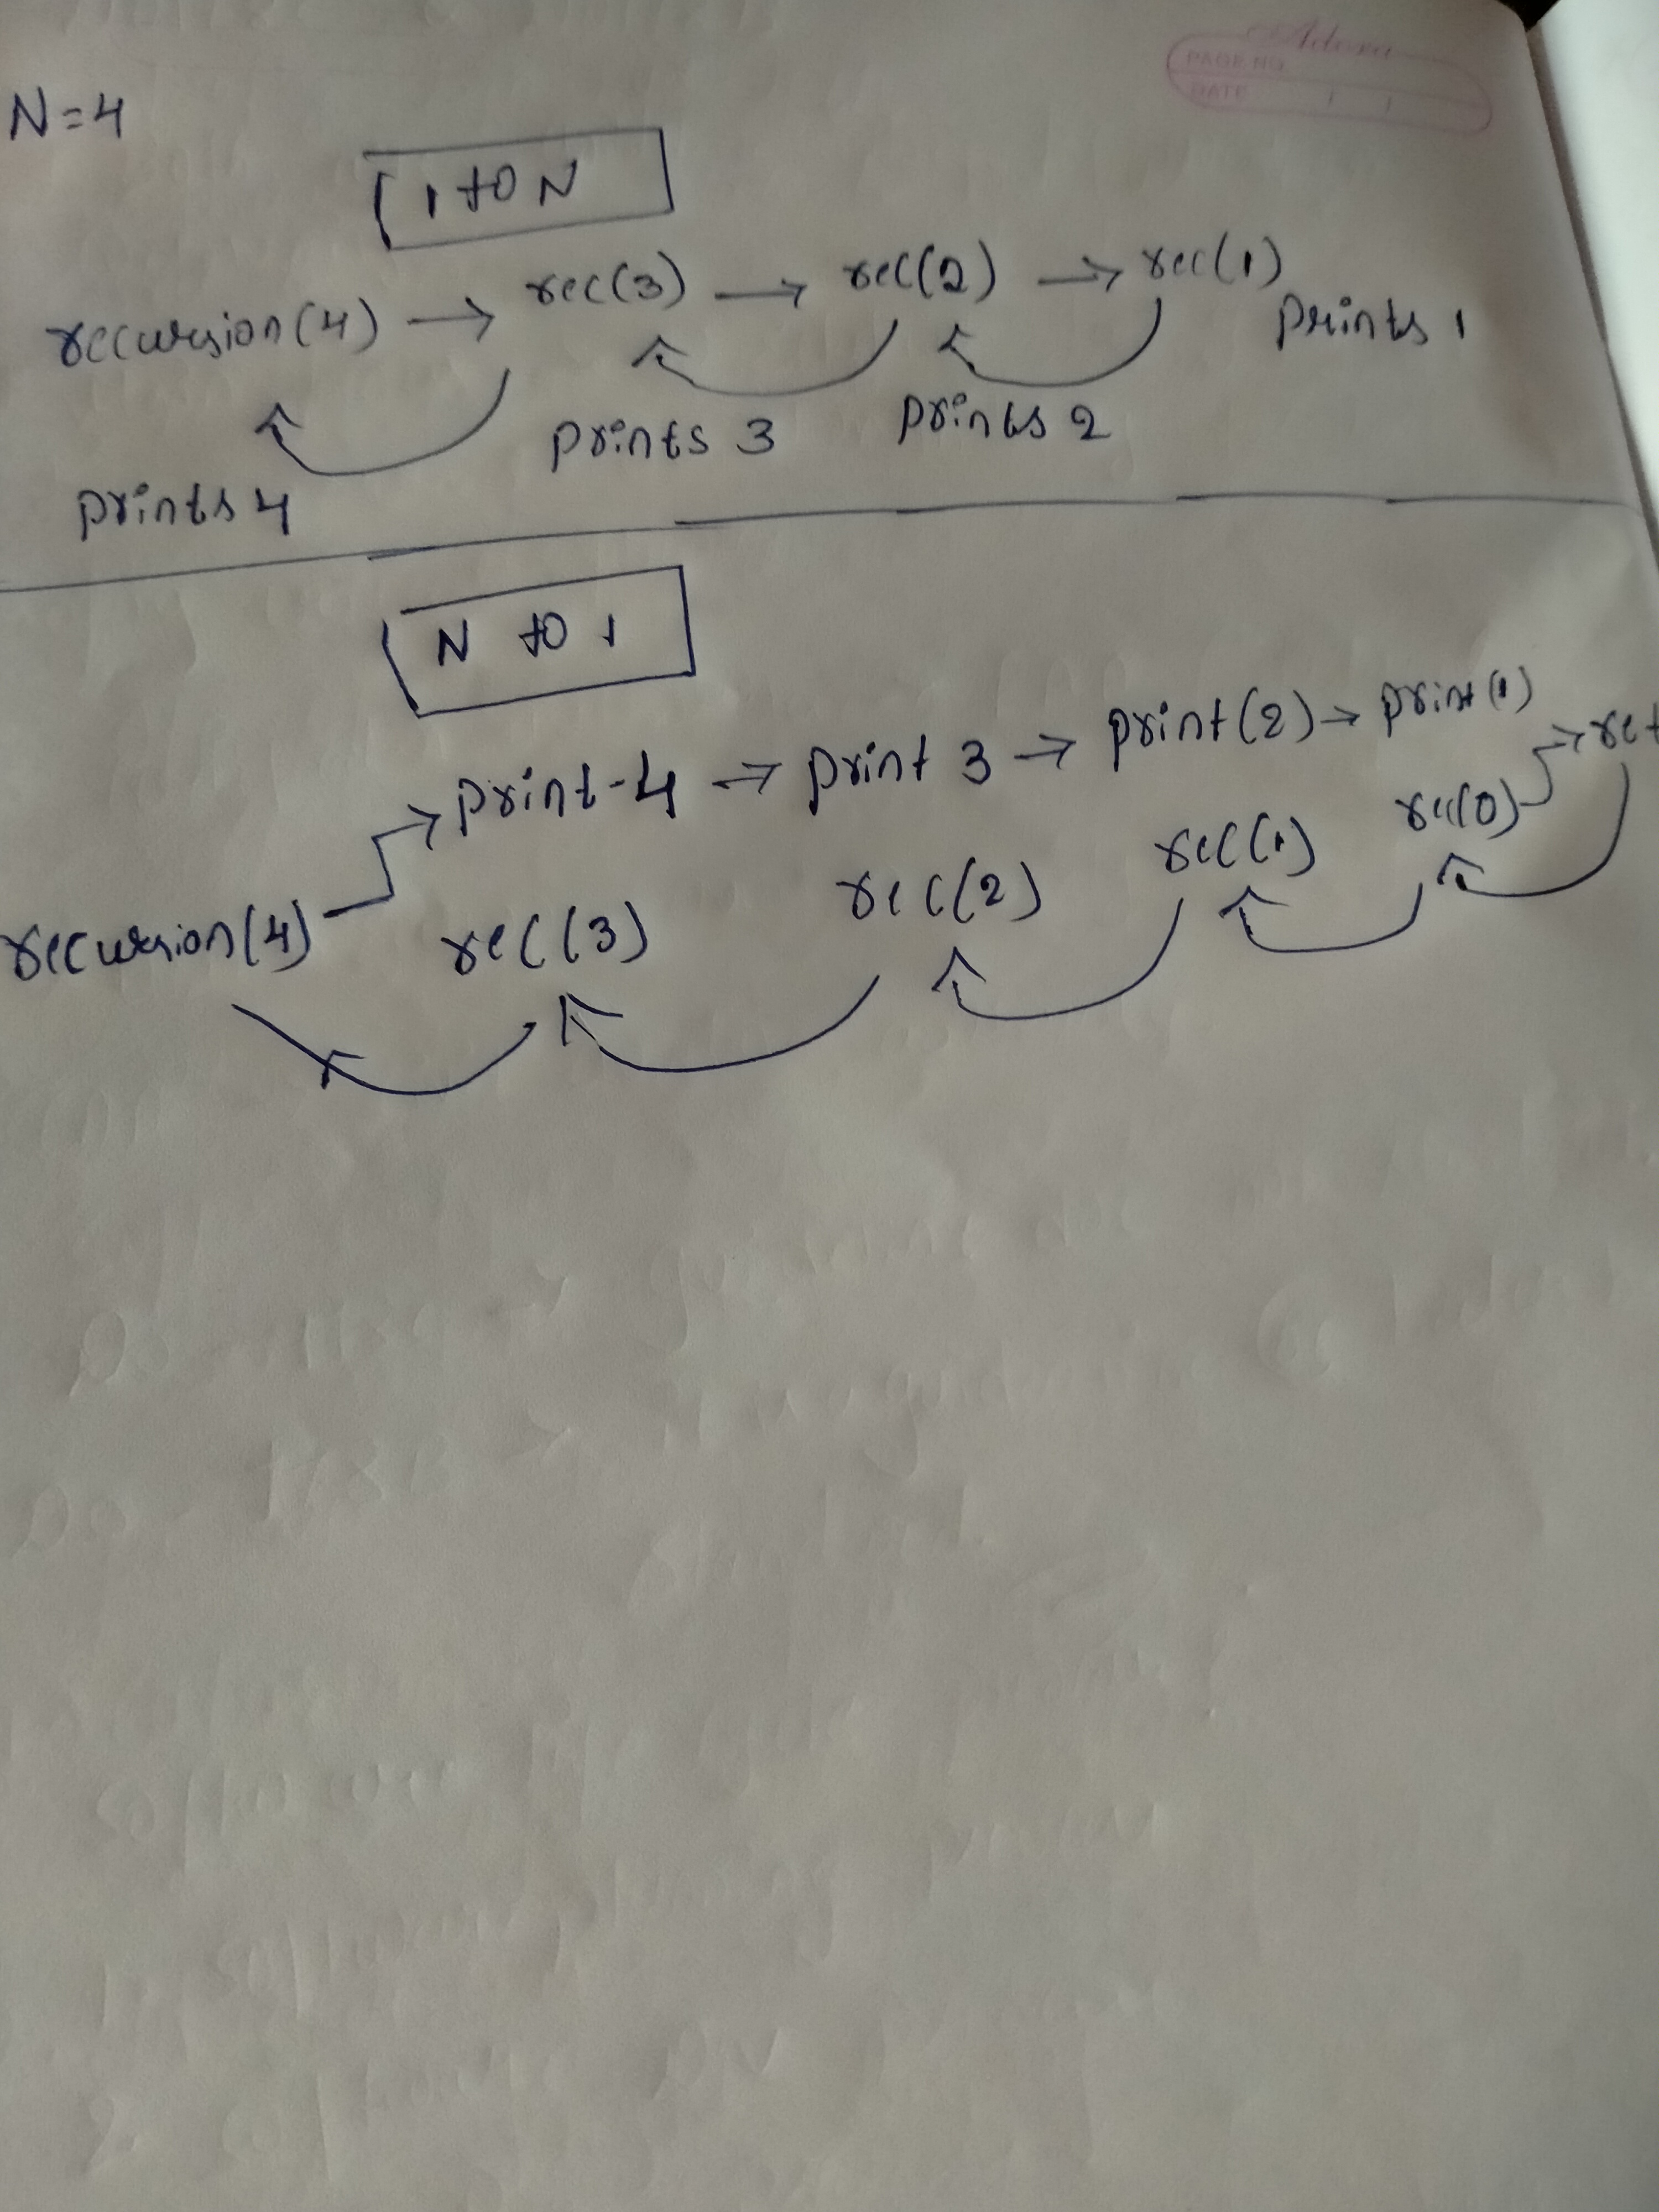 Adora
PAGE NO.
DATE / /
N=4
1 to N
recursion(4) → rec(3) → rec(2) → rec(1)
prints 1
prints 4 prints 3 prints 2
N to 1
print-4 → print 3 → print(2) → print(1) → ret
recursion(4) rec(3) rec(2) rec(1) rec(0)